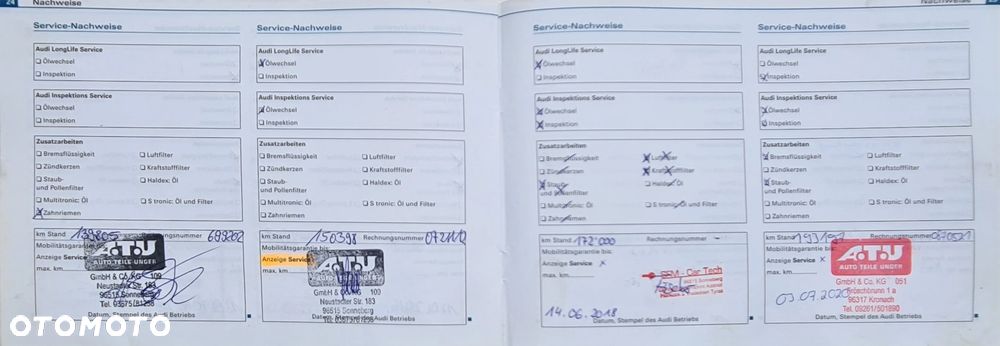 24 Nachweise
Service-Nachweise
Audi LongLife Service
Ölwechsel
Inspektion
Audi Inspektions Service
Ölwechsel
Inspektion
Zusatzarbeiten
Bremsflüssigkeit
Luftfilter
Zündkerzen
Kraftstofffilter
Staub-
und Pollenfilter
Haldex: Öl
Multitronic: Öl
S tronic: Öl und Filter
Zahnriemen
km Stand 139805 Rechnungsnummer
Mobilitätsgarantie bis:
Anzeige Service
max. km
A.T.U
AUTO TEILE UNGER
GmbH & Co. KG 109
Neustadter Str. 183
96515 Sonneberg
Datum, Stempel des Audi Betriebs
Service-Nachweise
Audi LongLife Service
Ölwechsel
Inspektion
Audi Inspektions Service
Ölwechsel
Inspektion
Zusatzarbeiten
Bremsflüssigkeit
Luftfilter
Zündkerzen
Kraftstofffilter
Staub-
und Pollenfilter
Haldex: Öl
Multitronic: Öl
S tronic: Öl und Filter
Zahnriemen
km Stand 150398 Rechnungsnummer
Mobilitätsgarantie bis:
Anzeige Service
max. km
A.T.U
GmbH & Co. KG 100
Neustadter Str. 183
96515 Sonneberg
Datum, Stempel des Audi Betriebs
Service-Nachweise
Audi LongLife Service
Ölwechsel
Inspektion
Audi Inspektions Service
Ölwechsel
Inspektion
Zusatzarbeiten
Bremsflüssigkeit
Luftfilter
Zündkerzen
Kraftstofffilter
Staub-
und Pollenfilter
Haldex: Öl
Multitronic: Öl
S tronic: Öl und Filter
Zahnriemen
km Stand 172 000 Rechnungsnummer
Mobilitätsgarantie bis:
Anzeige Service x
max. km
Car Tech
14.06.2018
Datum, Stempel des Audi Betriebs
Nachweise 25
Service-Nachweise
Audi LongLife Service
Ölwechsel
Inspektion
Audi Inspektions Service
Ölwechsel
Inspektion
Zusatzarbeiten
Bremsflüssigkeit
Luftfilter
Zündkerzen
Kraftstofffilter
Staub-
und Pollenfilter
Haldex: Öl
Multitronic: Öl
S tronic: Öl und Filter
Zahnriemen
km Stand Rechnungsnummer
Mobilitätsgarantie bis:
Anzeige Service x
max. km
A.T.U
AUTO TEILE UNGER
GmbH & Co. KG 051
96317 Kronach
Tel. 09261/501890
03.07.2020
Datum, Stempel des Audi Betriebs
OTOMOTO